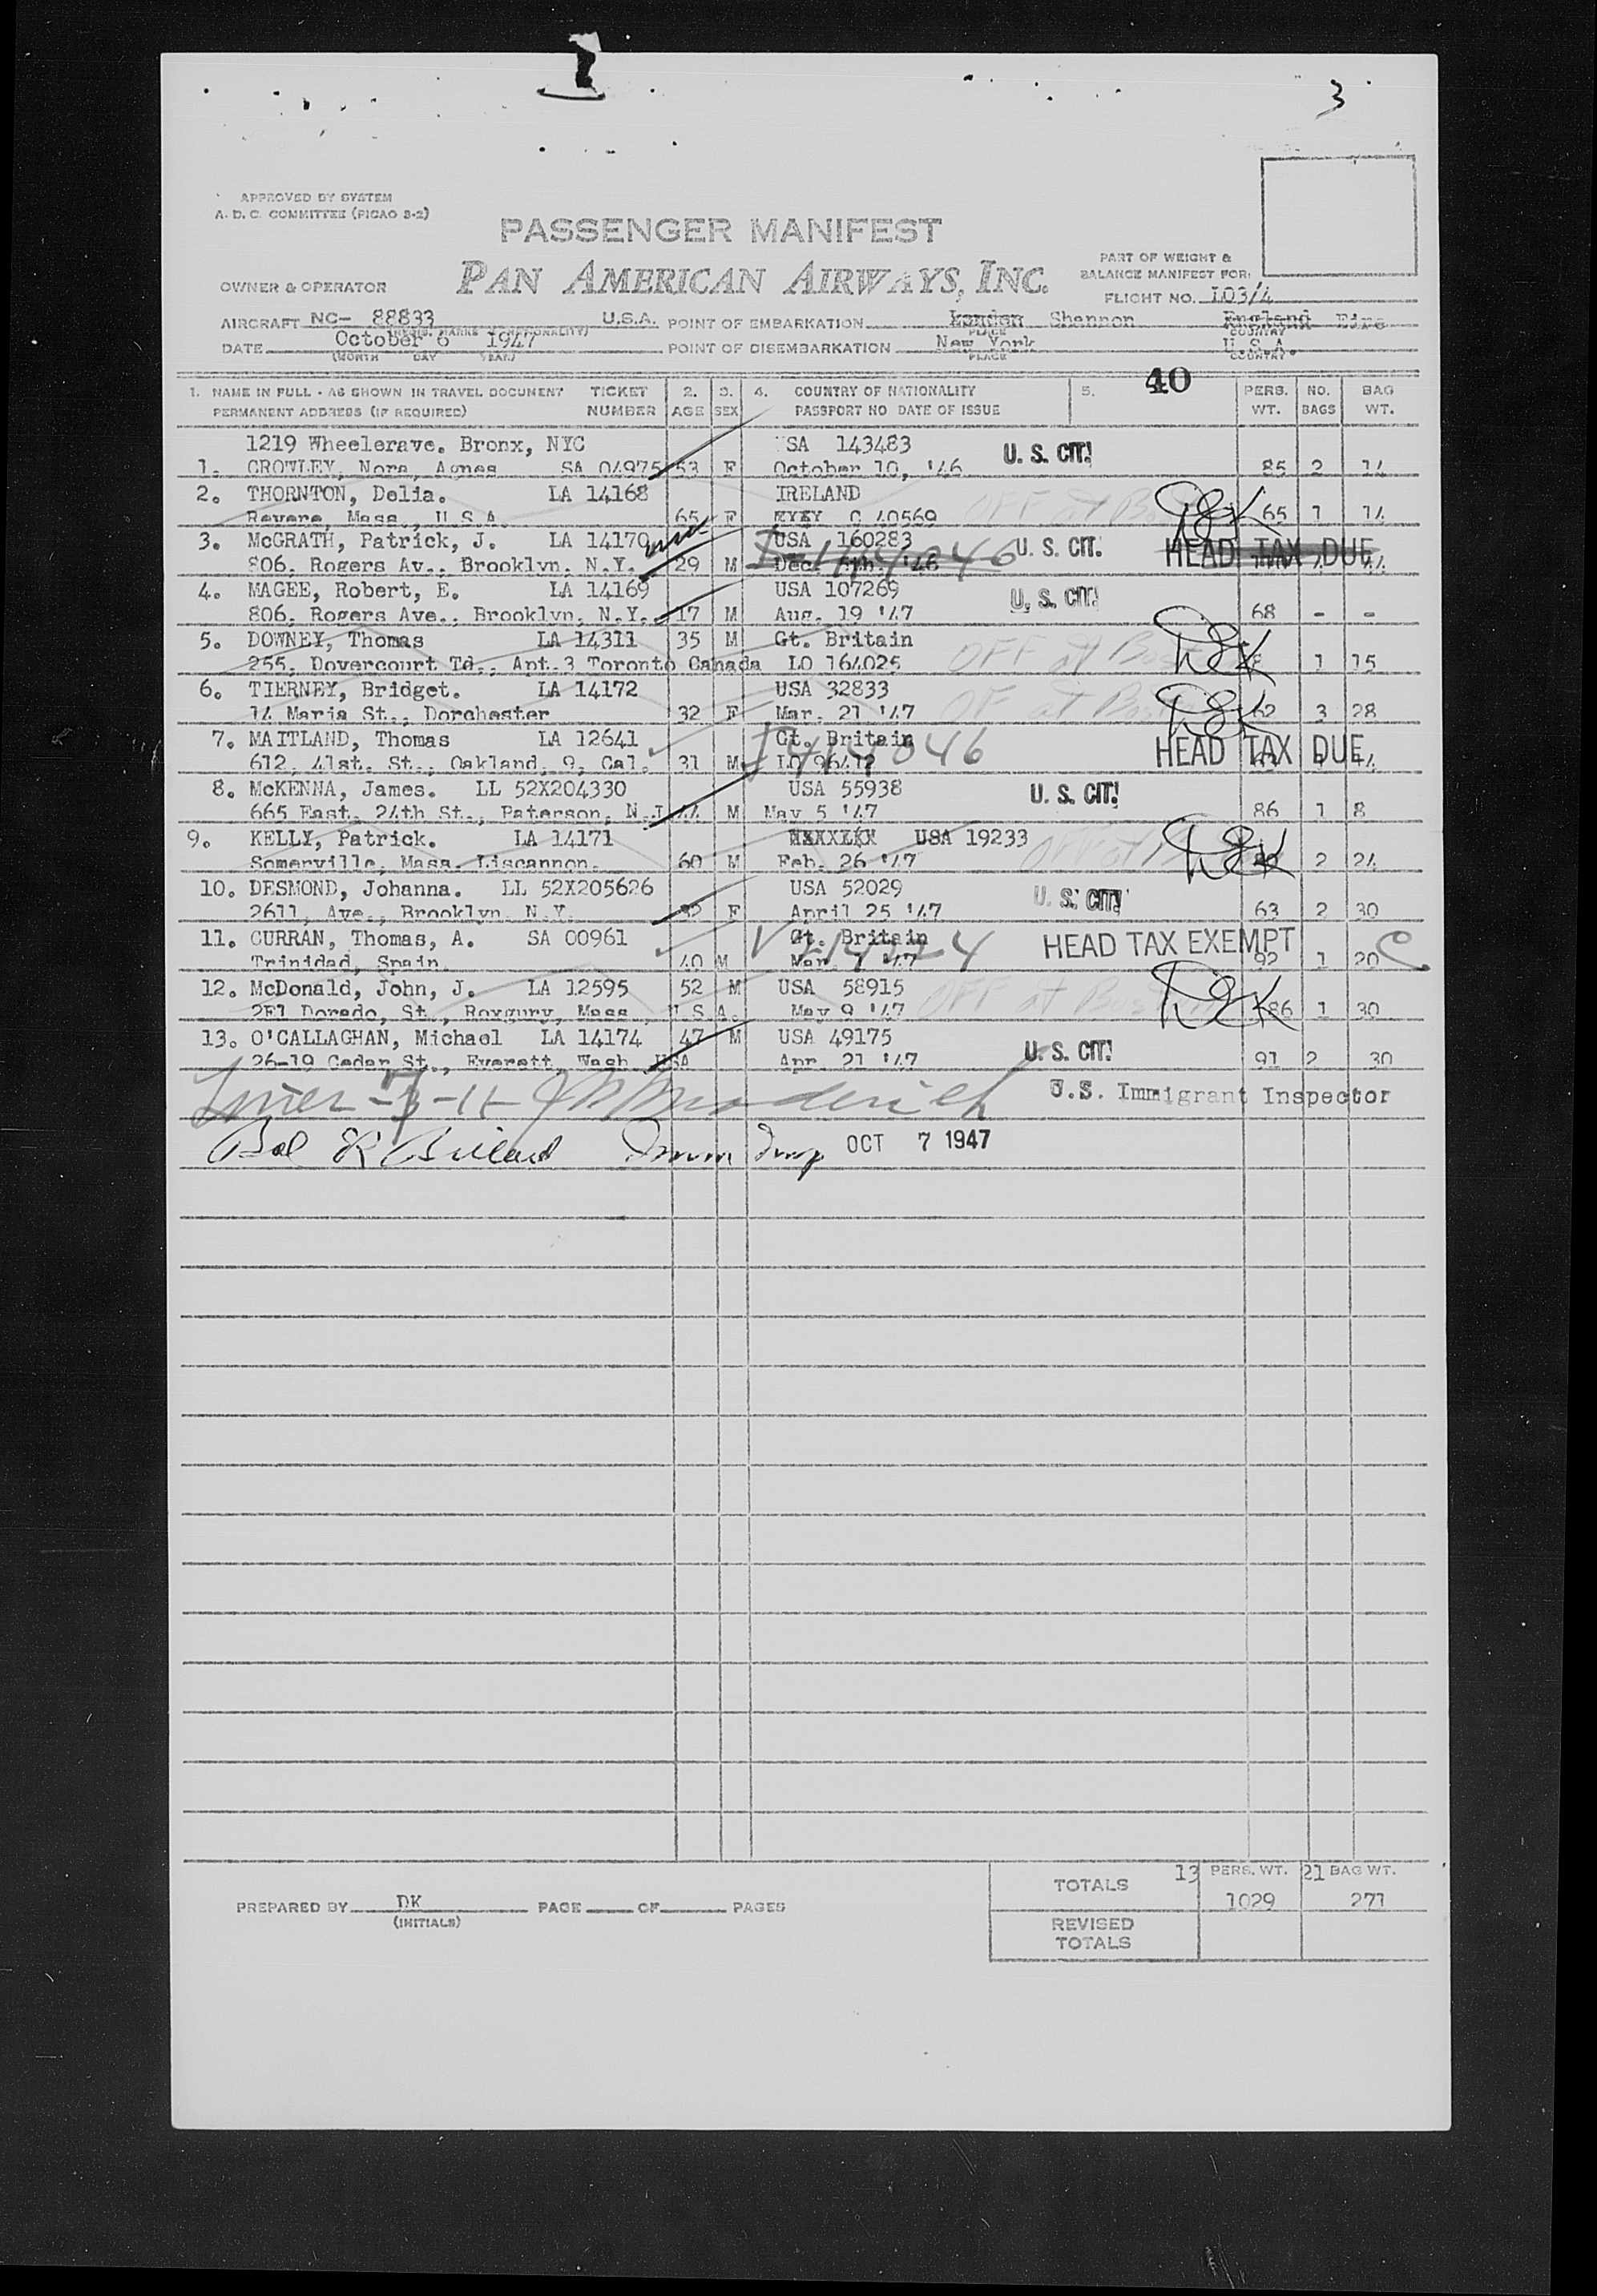 3
APPROVED BY SYSTEM
A. D. C. COMMITTEE (PICAO 3-2)
PASSENGER MANIFEST
PART OF WEIGHT &
BALANCE MANIFEST FOR:
OWNER & OPERATOR PAN AMERICAN AIRWAYS, INC.
FLIGHT NO. 103/4
AIRCRAFT NC- 88833 U.S.A. POINT OF EMBARKATION London Shannon England Eire
PLACE COUNTRY
DATE October 6 1947 POINT OF DISEMBARKATION New York U.S.A.
(MONTH DAY YEAR) PLACE COUNTRY
40
1. NAME IN FULL - AS SHOWN IN TRAVEL DOCUMENT TICKET 2. 3. 4. COUNTRY OF NATIONALITY 5. PERS. NO. BAG
PERMANENT ADDRESS (IF REQUIRED) NUMBER AGE SEX PASSPORT NO DATE OF ISSUE WT. BAGS WT.
1219 Wheelerave. Bronx, NYC USA 143483 U. S. CIT.
1. CROWLEY, Nora, Agnes SA 04975 53 F October 10, '46 85 2 14
2. THORNTON, Delia. LA 14168 IRELAND OFF at DEK
Revere, Mass., U.S.A. 65 F C 40569 65 1 14
3. McGRATH, Patrick, J. LA 14170 USA 160283 U. S. CIT. HEAD TAX DUE
806, Rogers Av., Brooklyn, N.Y. 29 M Dec. '46
4. MAGEE, Robert, E. LA 14169 USA 107269 U. S. CIT.
806, Rogers Ave., Brooklyn, N.Y. 17 M Aug. 19 '47 68 - -
5. DOWNEY, Thomas LA 14311 35 M Gt. Britain OFF at Bost DEK
255, Dovercourt Td., Apt.3 Toronto Canada LO 164025 1 15
6. TIERNEY, Bridget. LA 14172 USA 32833 OF at Bos DEK
14 Maria St., Dorchester 32 F Mar. 21 '47 62 3 28
7. MAITLAND, Thomas LA 12641 Gt. Britain I 414046 HEAD TAX DUE
612, 41st. St., Oakland, 9, Cal. 31 M LO 96412
8. McKENNA, James. LL 52X204330 USA 55938 U. S. CIT.
665 East, 24th St., Paterson, N.J 44 M May 5 '47 86 1 8
9. KELLY, Patrick. LA 14171 USA 19233 OFF at DEK
Somerville, Mass. Liscannon. 60 M Feb. 26 '47 2 24
10. DESMOND, Johanna. LL 52X205626 USA 52029 U. S. CIT.
2611, Ave., Brooklyn N.Y. 32 F April 25 '47 63 2 30
11. CURRAN, Thomas, A. SA 00961 Gt. Britain HEAD TAX EXEMPT
Trinidad, Spain. 40 M Mar. '47 92 1 20 C
12. McDonald, John, J. LA 12595 52 M USA 58915 OFF at Bos DEK
2El Dorado, St., Roxgury, Mass., U.S.A. May 9 '47 86 1 30
13. O'CALLAGHAN, Michael LA 14174 47 M USA 49175 U. S. CIT.
26-19 Cedar St., Everett, Wash. USA Apr. 21 '47 91 2 30
U.S. Immigrant Inspector
OCT 7 1947
TOTALS 13 PERS. WT. 21 BAG WT.
1029 271
PREPARED BY DK PAGE OF PAGES
(INITIALS)
REVISED
TOTALS